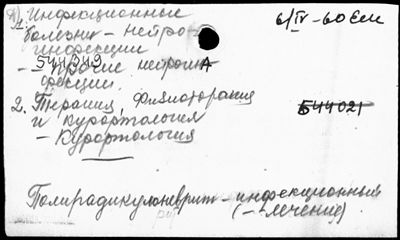 1. Инфекционные
болезни - нейро-
инфекции
544049
- прочие нейроин-
фекции.
2. Терапия, Физиотерапия
и курортология
- Курортология
6/IV-60 Еш
544021
Полирадикулоневрит - инфекционный
(- лечение)